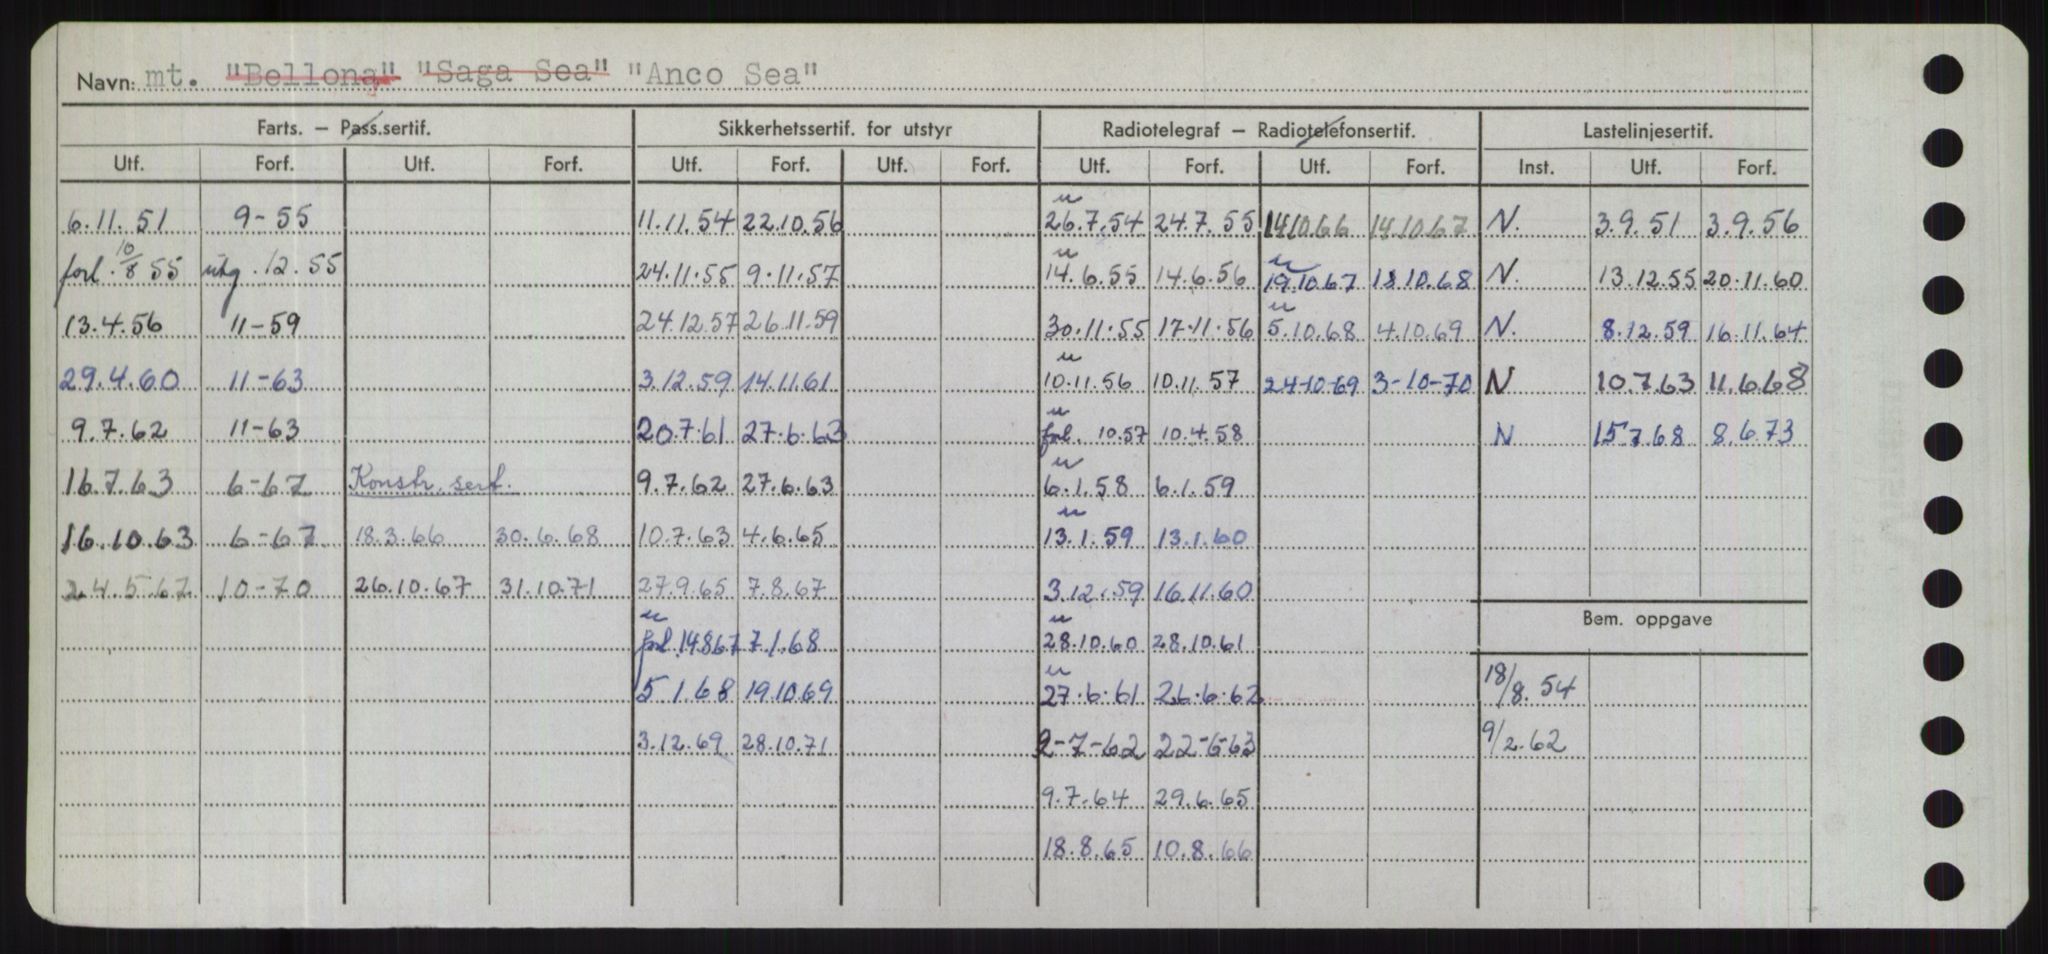 Navn: mt. "Bellona" "Saga Sea" "Anco Sea"
Farts. – Pass.sertif. Sikkerhetssertif. for utstyr Radiotelegraf – Radiotelefonsertif. Lastelinjesertif.
Utf. Forf. Utf. Forf. Utf. Forf. Utf. Forf. Utf. Forf. Utf. Forf. Inst. Utf. Forf.
6.11.51 9-55 11.11.54 22.10.56 u 26.7.54 24.7.55 14.10.66 14.10.67 N. 3.9.51 3.9.56
forl. 10/8 55 utg. 12.55 24.11.55 9.11.57 u 14.6.55 14.6.56 u 19.10.67 18.10.68 N. 13.12.55 20.11.60
13.4.56 11-59 24.12.57 26.11.59 30.11.55 17.11.56 u 5.10.68 4.10.69 N. 8.12.59 16.11.64
29.4.60 11-63 3.12.59 14.11.61 u 10.11.56 10.11.57 24-10-69 3-10-70 N 10.7.63 11.6.68
9.7.62 11-63 20.7.61 27.6.63 u forl. 10.57 10.4.58 N 15.7.68 8.6.73
16.7.63 6-67 Konstr. sert. 9.7.62 27.6.63 u 6.1.58 6.1.59
16.10.63 6-67 18.3.66 30.6.68 10.7.63 4.6.65 u 13.1.59 13.1.60
24.5.67 10-70 26.10.67 31.10.71 27.9.65 7.8.67 3.12.59 16.11.60
Bem. oppgave
u forl. 14.8.67 7.1.68 u 28.10.60 28.10.61
5.1.68 19.10.69 u 27.6.61 26.6.62 18/8.54
3.12.69 28.10.71 2-7-62 22-6-63 9/2.62
9.7.64 29.6.65
18.8.65 10.8.66